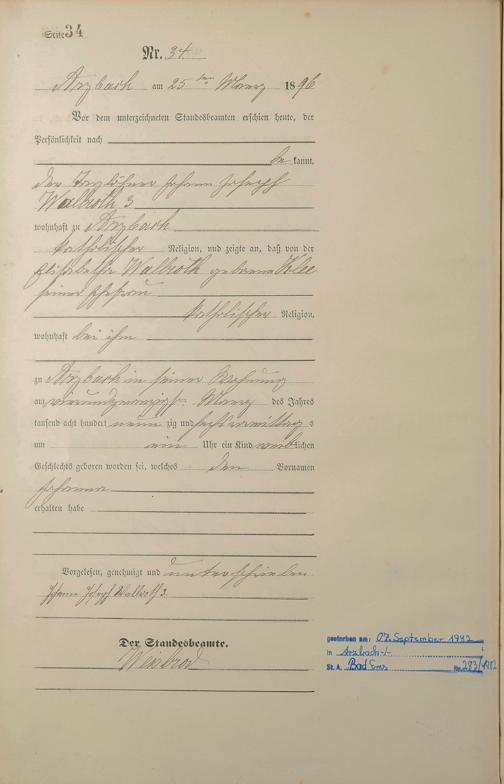 Seite 34
Nr. 34
Arzbach am 25 ten Maerz 1896
Vor dem unterzeichneten Standesbeamten erschien heute, der
Persönlichkeit nach
be kannt,
der Taglöhner Johann Joseph
Walroth 3
wohnhaft zu Arzbach
katholischer Religion, und zeigte an, daß von der
Elisabetha Walroth geborene Klee
seiner Ehefrau
katholischer Religion,
wohnhaft bei ihm
zu Arzbach in seiner Wohnung
am vierundzwanzigsten Maerz des Jahres
tausend acht hundert neun zig und sechs vormittag s
um ein Uhr ein Kind weib lichen
Geschlechts geboren worden sei, welches den Vornamen
Johanna
erhalten habe
Vorgelesen, genehmigt und unterschrieben
Johann Joseph Walroth 3.
Der Standesbeamte.
Weinbrod
gestorben am: 07. September 1982
in Arzbach
St. A. Bad Ems Nr. 283/1982